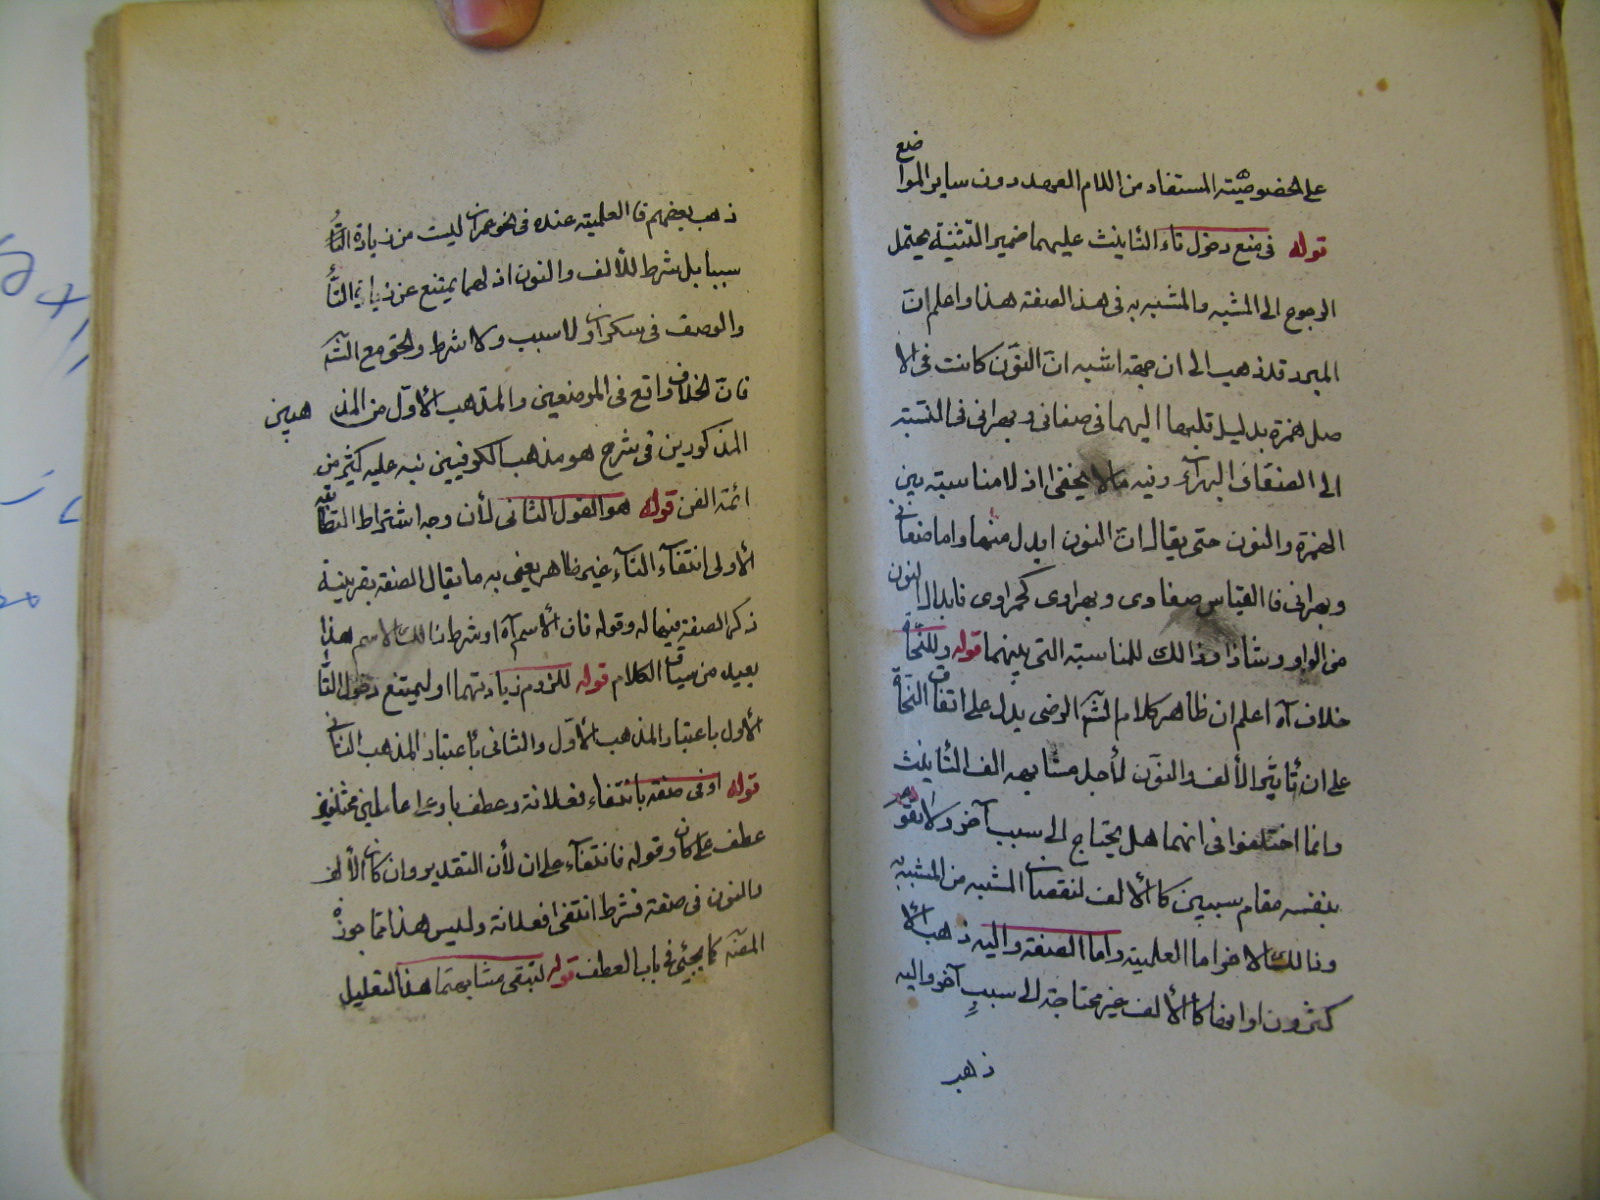 على الخصوصية المستفاد من اللام العهد دون ساير المواضع
قوله في منع دخول تاء التانيث عليهما ضمير التثنية يحتمل
الرجوع الى المشبه والمشبه به في هذ الصفة هذا واعلم ان
المبرد قد ذهب الى ان جهة الشبه ان النون كانت في الا
صل همزة بدليل قلبها اليهما في صنعاني وبهراني في النسبة
الى الصنعاء البهراء وفيه ما لا يخفى اذ لا مناسبة بين
الهمزة والنون حتى يقال ان النون ابدل منها واما صنعاني
وبهراني فا القياس صنعاوى وبهراوى كحمراوى فابدال النون
من الواو وشاذا وذالك للمناسبة التى بينهما قوله وللنحاة
خلاف اه اعلم ان ظاهر كلام الشم الرضى يدل على اتفاق النحاة
على ان تأثير الألف والنون لأجل مشابهة الف التأنيث
وانما اختلفوا في انهما هل يحتاج الى سبب آخر ولا يقوم
بنفسه مقام سببين كا الألف لنقصان المشبه من المشبه به
وذالك الاخر اما العلمية واما الصفة واليه ذهب الا
كثرون او انهما كا الألف غير محتاجة الى سبب آخر واليه
ذهب
ذهب بعضهم فا العلمية عنده في نحو عمران ليست من زيادة التاء
سببا بل شرط للألف والنون اذ لهما يمتنع عن زيادة التاء
والوصف في سكران لا سبب ولا شرط والحق مع الشم
فان الخلاف واقع في الموضعين والمذهب الأول من المذ هبين
المذكورين في شرح هو مذهب الكوفيين نبه عليه كثير من
ائمة الفن قوله هو القول الثاني لأن وجه اشتراط
الأولى انتفاء التاء غير ظاهر يعنى به ما يقال الصفة بقرينة
ذكر الصفة فيما له وقوله فان الأسم اه او شرطنا لك الاسم هذا
بعيد من سياق الكلام قوله للزوم زيادتهما او ليمتنع دخول التاء
الأول باعتبار المذهب الأول والثاني بأعتبار المذهب الثاني
قوله او في صفة بانتفاء فعلانة وعطف باو على عاملين مختلفين
عطف على كان وقوله فانتفاء على ان لأن التقدير وان كان الألف
والنون في صفة فشرط انتفى فعلانة وليس هذا مما جوزه
المصه كما يجئ في باب العطف قوله لتبقى مشابهتهما هذا التعليل